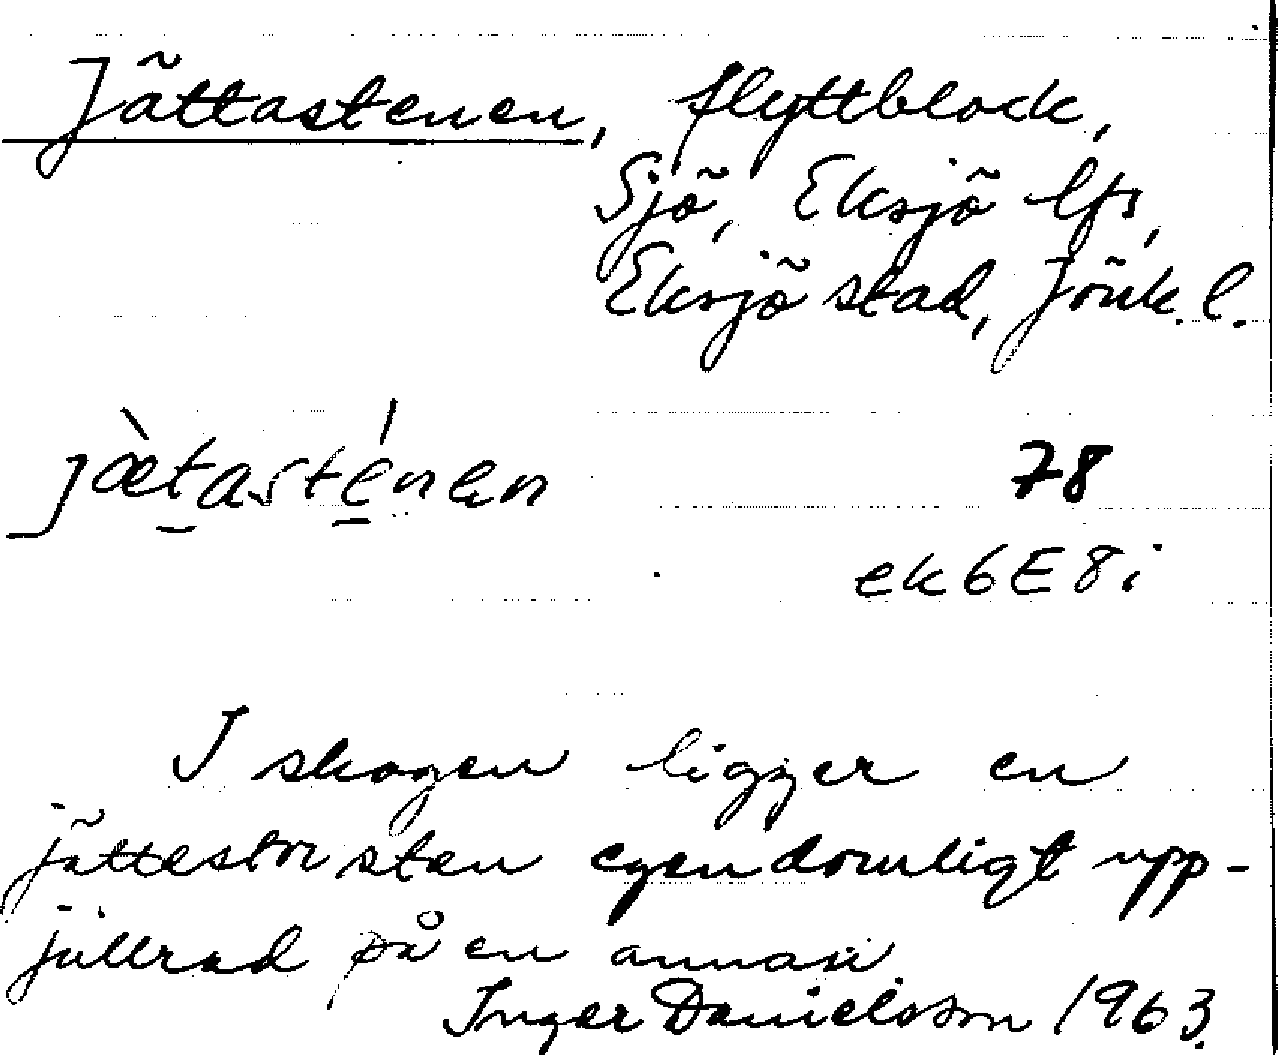 Jättastenen, flyttblock,
Sjö, Eksjö lfs,
Eksjö stad, Jönk. l.
jæ̀tasténen 78
ek 6E8i
I skogen ligger en
jättestor sten egendomligt upp-
jullrad på en annan.
Inger Danielsson 1963.